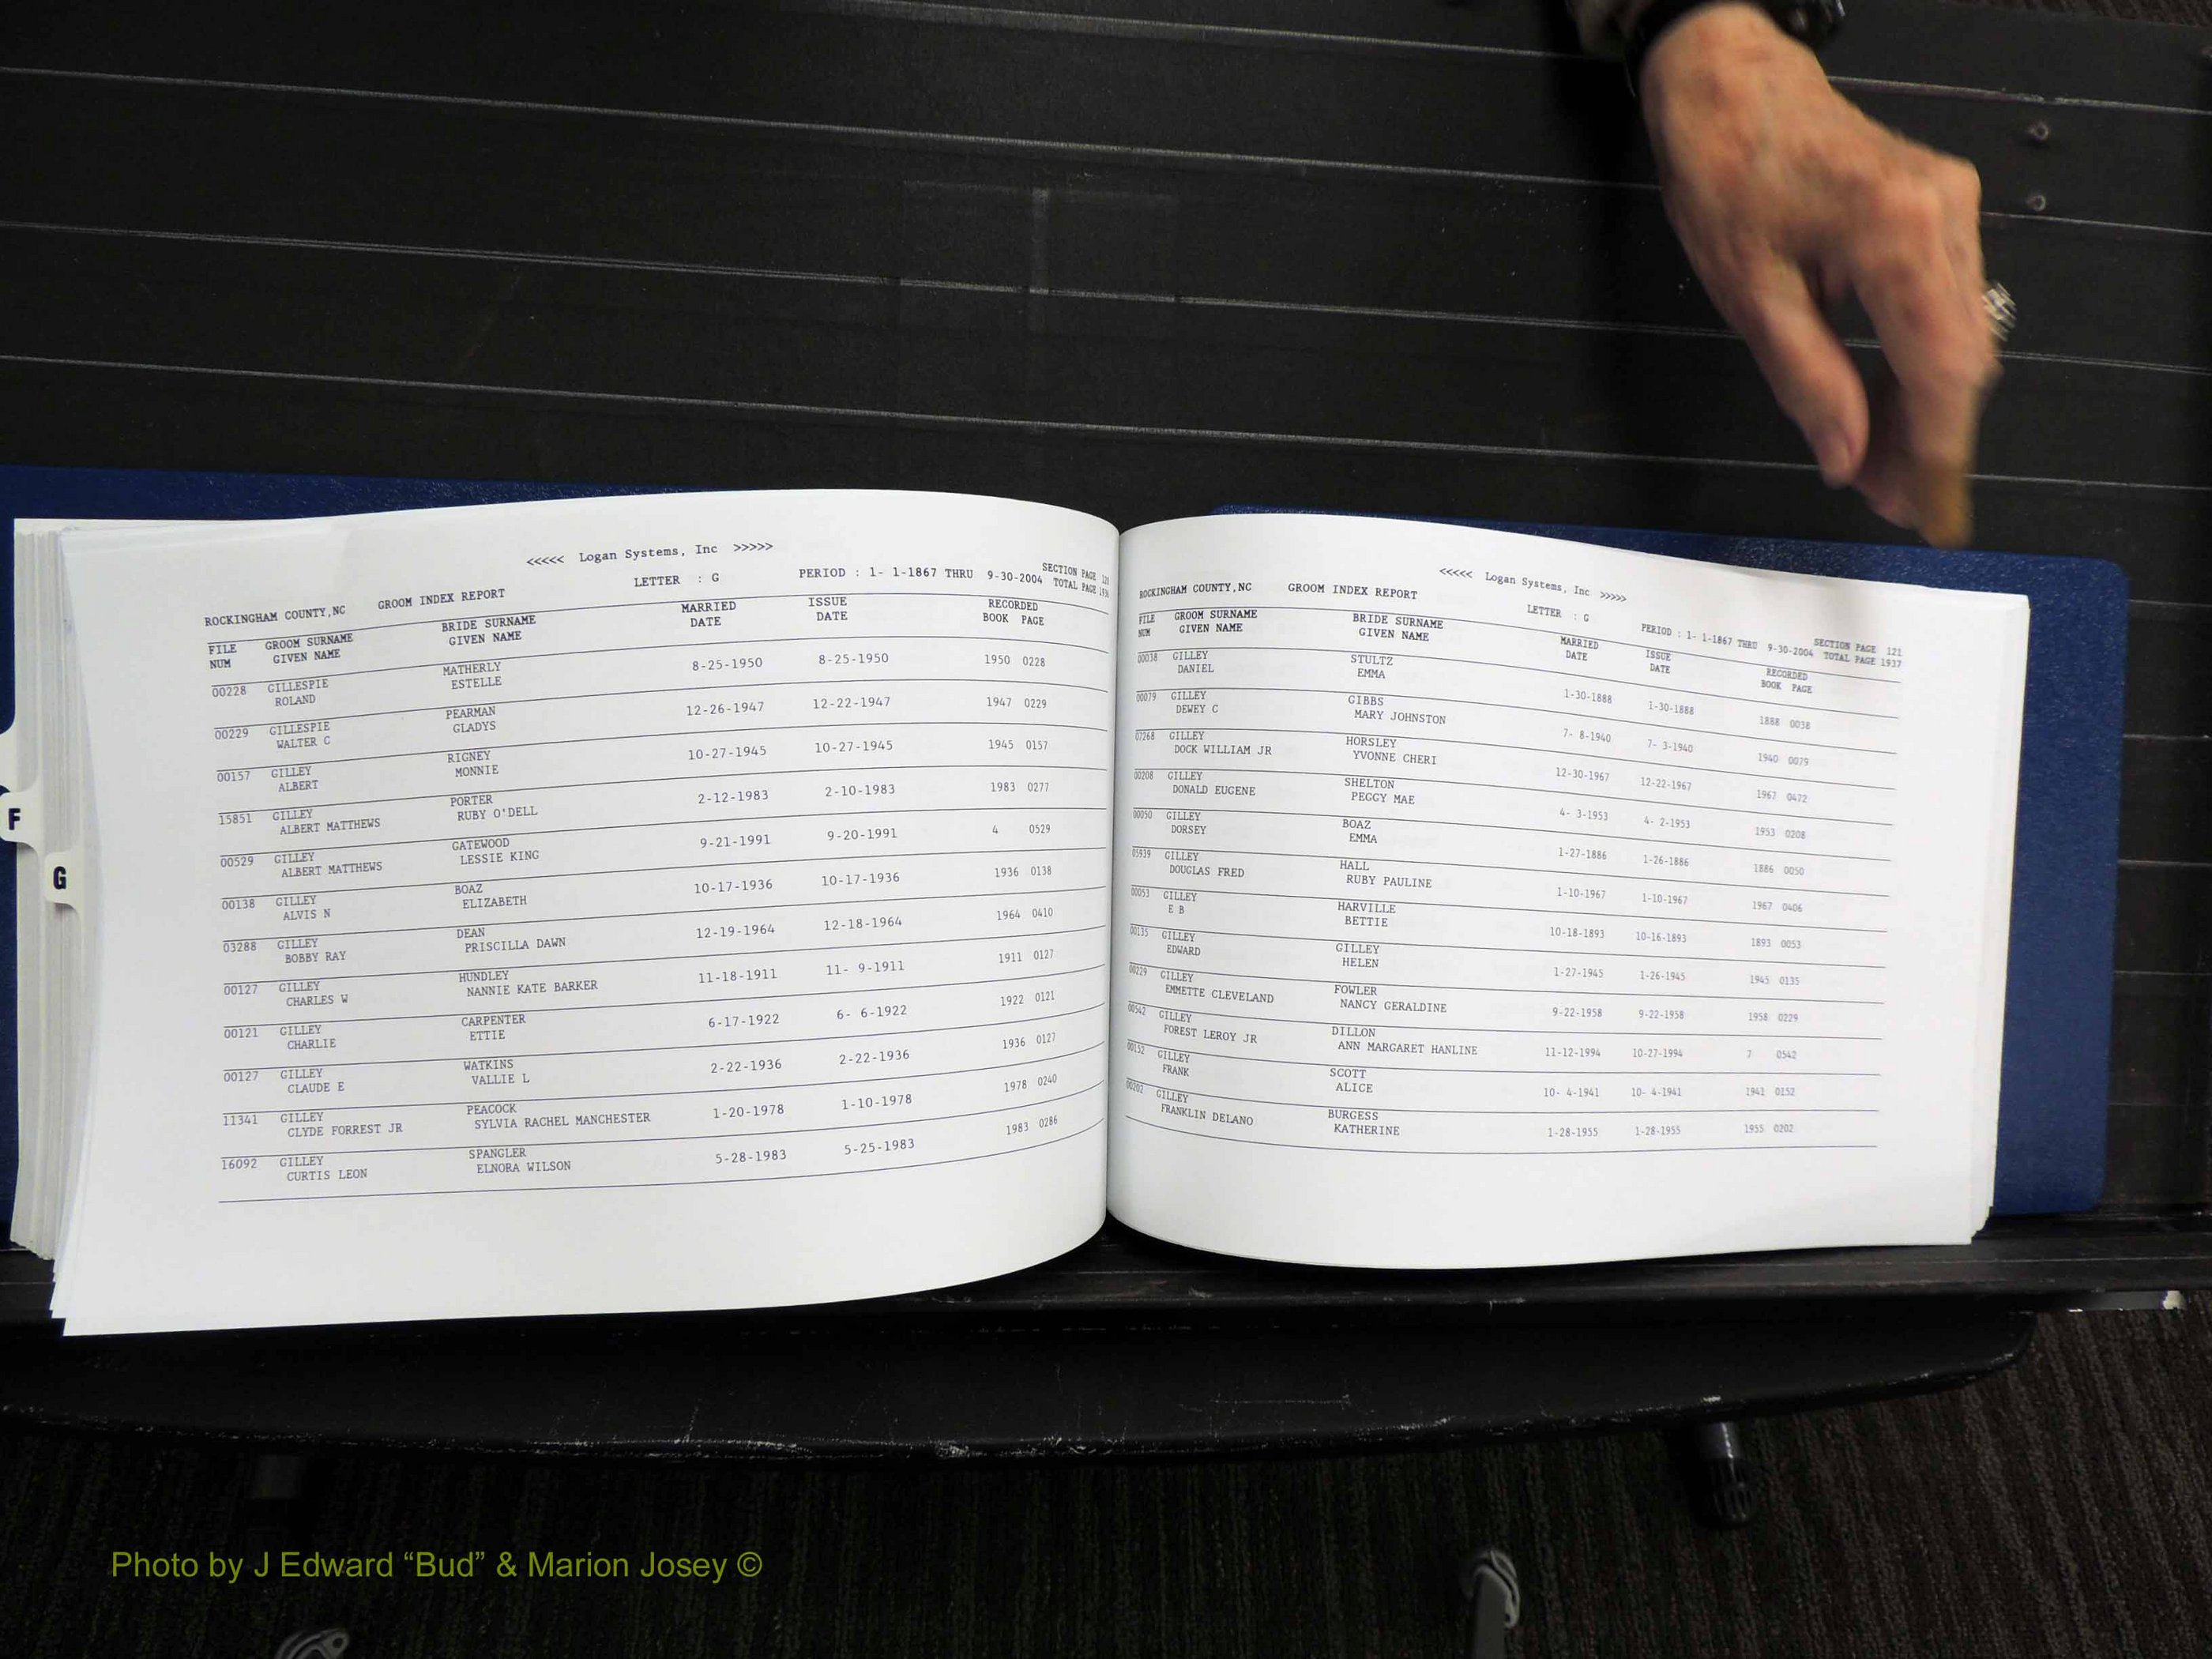 <<<<< Logan Systems, Inc >>>>>
ROCKINGHAM COUNTY,NC GROOM INDEX REPORT LETTER : G PERIOD : 1- 1-1867 THRU 9-30-2004 SECTION PAGE
TOTAL PAGE
FILE GROOM SURNAME BRIDE SURNAME MARRIED ISSUE RECORDED
NUM GIVEN NAME GIVEN NAME DATE DATE BOOK PAGE
00228 GILLESPIE MATHERLY 8-25-1950 8-25-1950 1950 0228
ROLAND ESTELLE
00229 GILLESPIE PEARMAN 12-26-1947 12-22-1947 1947 0229
WALTER C GLADYS
00157 GILLEY RIGNEY 10-27-1945 10-27-1945 1945 0157
ALBERT MONNIE
15851 GILLEY PORTER 2-12-1983 2-10-1983 1983 0277
ALBERT MATTHEWS RUBY O'DELL
00529 GILLEY GATEWOOD 9-21-1991 9-20-1991 4 0529
ALBERT MATTHEWS LESSIE KING
00138 GILLEY BOAZ 10-17-1936 10-17-1936 1936 0138
ALVIS N ELIZABETH
03288 GILLEY DEAN 12-19-1964 12-18-1964 1964 0410
BOBBY RAY PRISCILLA DAWN
00127 GILLEY HUNDLEY 11-18-1911 11- 9-1911 1911 0127
CHARLES W NANNIE KATE BARKER
00121 GILLEY CARPENTER 6-17-1922 6- 6-1922 1922 0121
CHARLIE ETTIE
00127 GILLEY WATKINS 2-22-1936 2-22-1936 1936 0127
CLAUDE E VALLIE L
11341 GILLEY PEACOCK 1-20-1978 1-10-1978 1978 0240
CLYDE FORREST JR SYLVIA RACHEL MANCHESTER
16092 GILLEY SPANGLER 5-28-1983 5-25-1983 1983 0286
CURTIS LEON ELNORA WILSON
F
G
<<<<< Logan Systems, Inc >>>>>
ROCKINGHAM COUNTY,NC GROOM INDEX REPORT LETTER : G PERIOD : 1- 1-1867 THRU 9-30-2004 SECTION PAGE 121
TOTAL PAGE 1937
FILE GROOM SURNAME BRIDE SURNAME MARRIED ISSUE RECORDED
NUM GIVEN NAME GIVEN NAME DATE DATE BOOK PAGE
00038 GILLEY STULTZ 1-30-1888 1-30-1888 1888 0038
DANIEL EMMA
00079 GILLEY GIBBS 7- 8-1940 7- 3-1940 1940 0079
DEWEY C MARY JOHNSTON
07268 GILLEY HORSLEY 12-30-1967 12-22-1967 1967 0472
DOCK WILLIAM JR YVONNE CHERI
00208 GILLEY SHELTON 4- 3-1953 4- 2-1953 1953 0208
DONALD EUGENE PEGGY MAE
00050 GILLEY BOAZ 1-27-1886 1-26-1886 1886 0050
DORSEY EMMA
05939 GILLEY HALL 1-10-1967 1-10-1967 1967 0406
DOUGLAS FRED RUBY PAULINE
00053 GILLEY HARVILLE 10-18-1893 10-16-1893 1893 0053
E B BETTIE
00135 GILLEY GILLEY 1-27-1945 1-26-1945 1945 0135
EDWARD HELEN
00229 GILLEY FOWLER 9-22-1958 9-22-1958 1958 0229
EMMETTE CLEVELAND NANCY GERALDINE
00542 GILLEY DILLON 11-12-1994 10-27-1994 7 0542
FOREST LEROY JR ANN MARGARET HANLINE
00152 GILLEY SCOTT 10- 4-1941 10- 4-1941 1941 0152
FRANK ALICE
00202 GILLEY BURGESS 1-28-1955 1-28-1955 1955 0202
FRANKLIN DELANO KATHERINE
Photo by J Edward “Bud” & Marion Josey ©